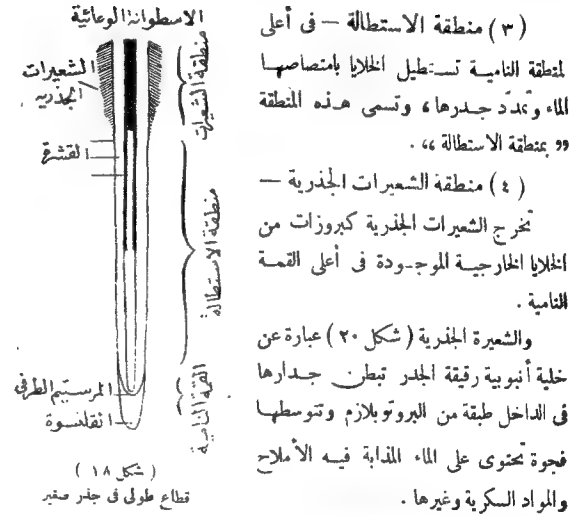 (٣) منطقة الاستطالة — فى أعلى
لمنطقة النامية تستطيل الخلايا بامتصاصها
الماء وتمدّد جدرها، وتسمى هذه المنطقة
” بمنطقة الاستطالة “.
(٤) منطقة الشعيرات الجذرية —
تخرج الشعيرات الجذرية كبروزات من
الخلايا الخارجية الموجودة فى أعلى القمة
النامية .
والشعيرة الجذرية (شكل ٢٠) عبارة عن
خلية أنبوبية رقيقة الجدر تبطن جدارها
فى الداخل طبقة من البروتوبلازم وتتوسطها
فجوة تحتوى على الماء المذابة فيه الأملاح
والمواد السكرية وغيرها .
الاسطوانة الوعائية
الشعيرات
الجذريه
القشرة
المرستيم الطرفى
القلنسوة
منطقة الشعيرات
منطقة الاستطالة
القمة النامية
(شكل ١٨)
قطاع طولى فى جذر صغير